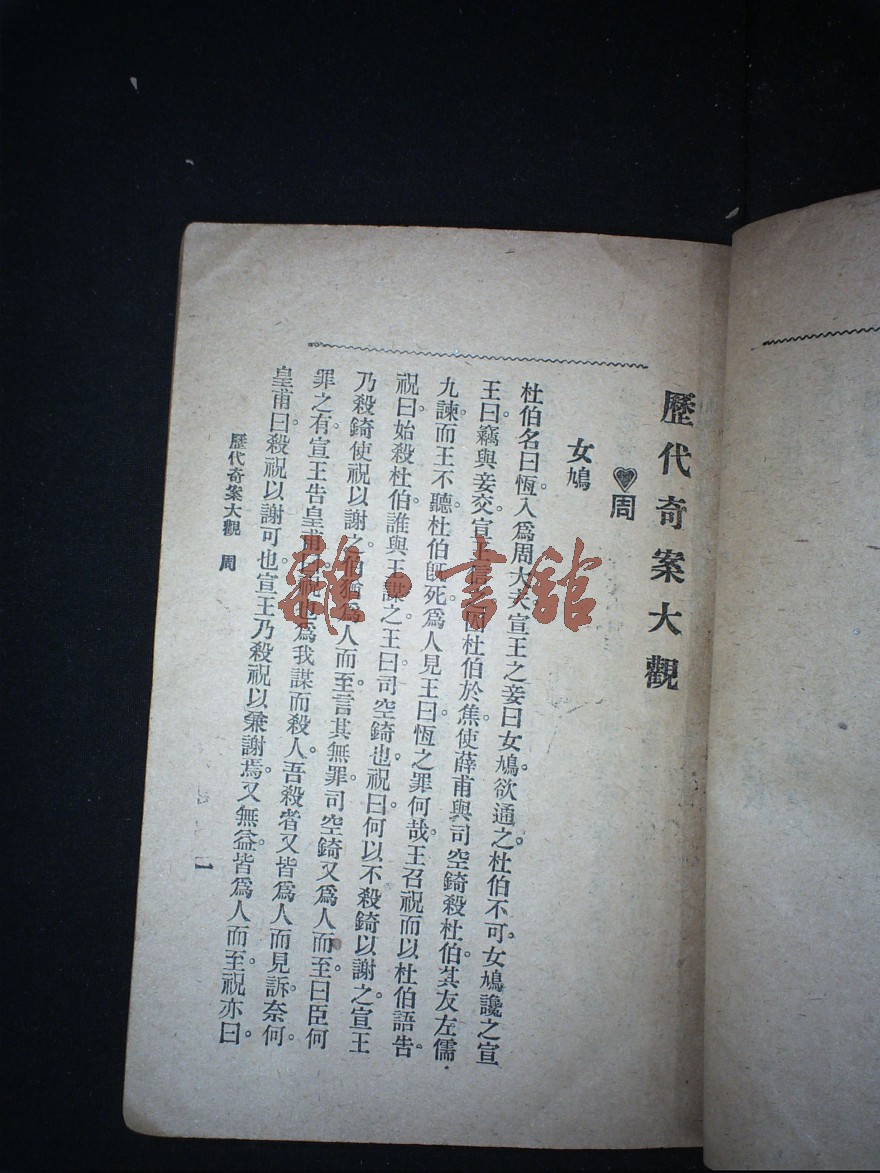 歷代奇案大觀
周
女鳩
杜伯名曰恆入爲周大夫宣王之妾曰女鳩欲通之杜伯不可女鳩讒之宣
王曰竊與妾交宣王信 囚杜伯於焦使薛甫與司空錡殺杜伯其友左儒
九諫而王不聽杜伯旣死爲人見王曰恆之罪何哉王召祝而以杜伯語告
祝曰始殺杜伯誰與王謀之王曰司空錡也祝曰何以不殺錡以謝之宣王
乃殺錡使祝以謝之伯猶爲人而至言其無罪司空錡又爲人而至曰臣何
罪之有宣王告皇甫曰祝也爲我謀而殺人吾殺者又皆爲人而見訴奈何
皇甫曰殺祝以謝可也宣王乃殺祝以兼謝焉又無益皆爲人而至祝亦曰
歷代奇案大觀 周
一
雜·書館